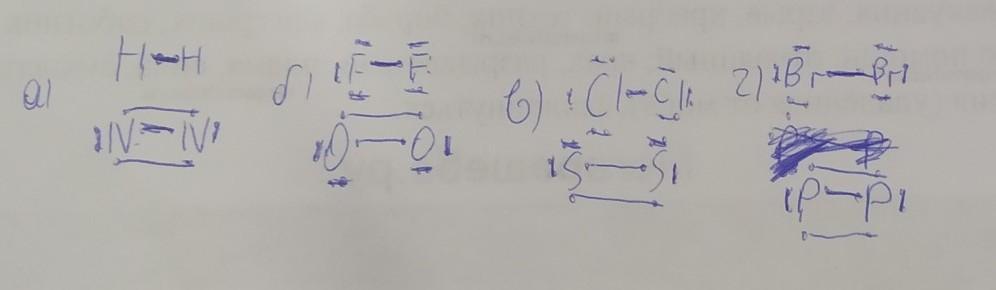 а) H-H б) F-F в) Cl-Cl г) Br-Br
N≡N O=O S=S P≡P